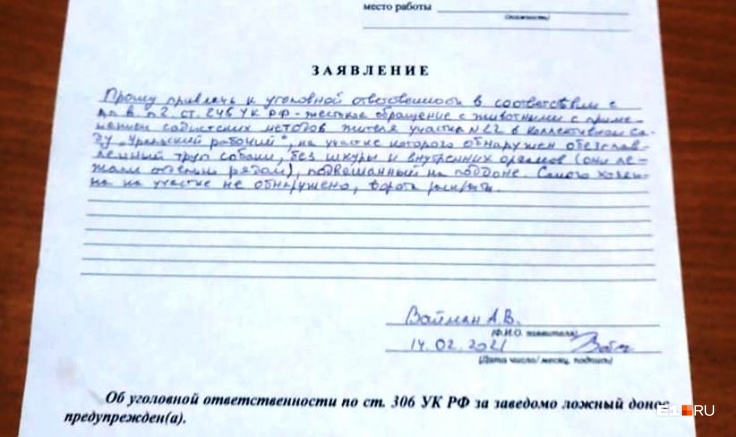 место работы
(должность)
ЗАЯВЛЕНИЕ
Прошу привлечь к уголовной ответственности в соответствии с
пп. в п2. ст. 245 УК РФ - жестокое обращение с животными с приме-
нением садистских методов жителя участка №22 в коллективном са-
ду "Уральский рабочий", на участке которого обнаружен обезглав-
ленный труп собаки, без шкуры и внутренних органов (они ле-
жали отдельно рядом), подвешанный на поддоне. Самого хозяи-
на на участке не обнаружено, ворота раскрыты.
Вайман А.В.
(Ф.И.О. заявителя)
14.02.2021
(Дата число/ месяц, подпись)
Об уголовной ответственности по ст. 306 УК РФ за заведомо ложный донос
предупрежден(а).
E1.RU